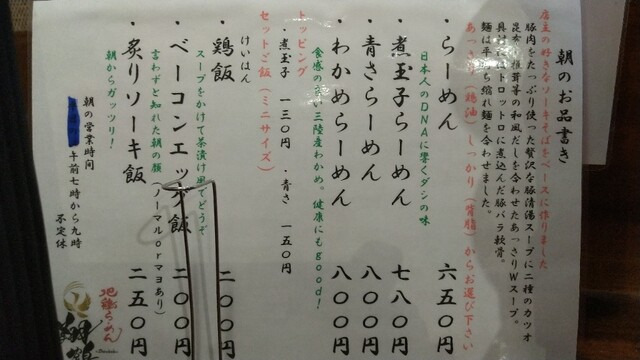 朝のお品書き
店主の好きなソーキそばをベースに作りました
豚肉をたっぷり使った贅沢な豚清湯スープに二種のカツオ
昆布、椎茸等の和風だしを合わせたあっさりWスープ。
具材にはトロットロに煮込んだ豚バラ軟骨。
麺は平打ち縮れ麺を合わせました。
あっさり（鶏油）しっかり（背脂）からお選び下さい
・らーめん 六五〇円
日本人のDNAに響くダシの味
・煮玉子らーめん 七八〇円
・青さらーめん 八〇〇円
・わかめらーめん 八〇〇円
食感の 三陸産わかめ。健康にもgood！
トッピング
・煮玉子 一三〇円 ・青さ 一五〇円
セットご飯（ミニサイズ）
けいはん
・鶏飯 二〇〇円
スープをかけて茶漬け風でどうぞ
・ベーコンエッグ飯 二〇〇円
言わずと知れた朝の顔（ノーマルorマヨあり）
・炙りソーキ飯 二五〇円
朝からガッツリ！
朝の営業時間
午前七時から九時
不定休
地雞らーめん